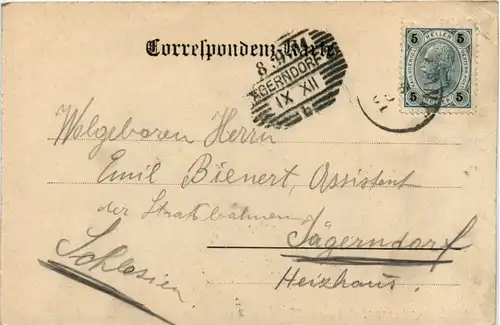 Correspondenz-Karte
8.9.01
JÄGERNDORF
IX XII
b
5 HELLER 5
5 5
Wolgeboren Herrn
Emil Bienert, Assistent
der Staatsbahnen
Jägerndorf
Heizhaus.
Schlesien